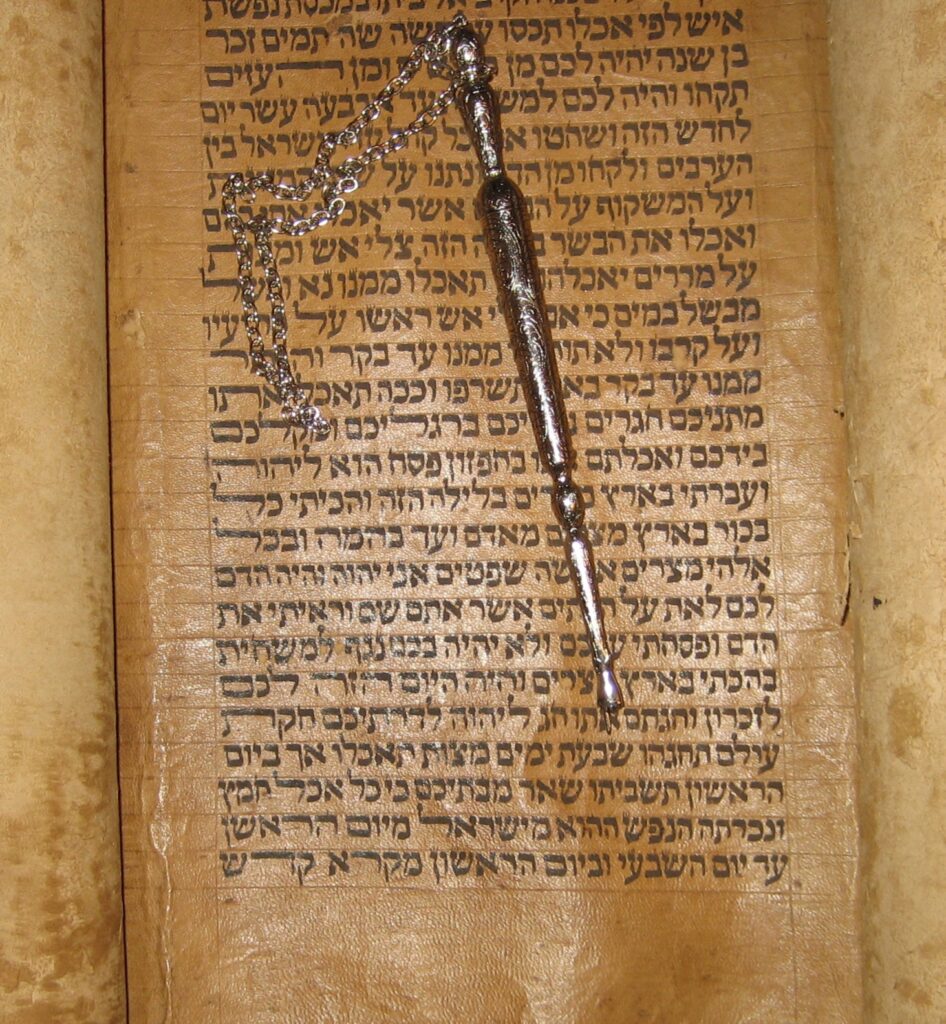 ביתו במכסת נפשת
איש לפי אכלו תכסו שה תמים זכר
בן שנה יהיה לכם מן ומן העזים
תקחו והיה לכם עד ארבעה עשר יום
לחדש הזה ושחטו כל בין
הערבים ולקחו מן ונתנו על
ועל המשקוף על אשר
ואכלו את הבשר הזה צלי אש
על מררים תאכלו ממנו נא
מבשל במים כי אש ראשו על
ועל קרבו ולא ממנו עד בקר
ממנו עד בקר תשרפו וככה אתו
מתניכם חגרים ברגליכם ומקלכם
בידכם ואכלתם בחפזון פסח הוא ליהוה
ועברתי בארץ בלילה הזה והכיתי כל
בכור בארץ מצרים מאדם ועד בהמה ובכל
אלהי מצרים שפטים אני יהוה והיה הדם
לכם לאת על אשר אתם שם וראיתי את
הדם ופסחתי ולא יהיה בכם נגף למשחית
בהכתי בארץ מצרים והיה היום הזה לכם
לזכרון וחגתם אתו חג ליהוה לדרתיכם חקת
עולם תחגהו שבעת ימים מצות תאכלו אך ביום
הראשון תשביתו שאר מבתיכם כי כל אכל חמץ
ונכרתה הנפש ההוא מישראל מיום הראשן
עד יום השבעי וביום הראשון מקרא קדש